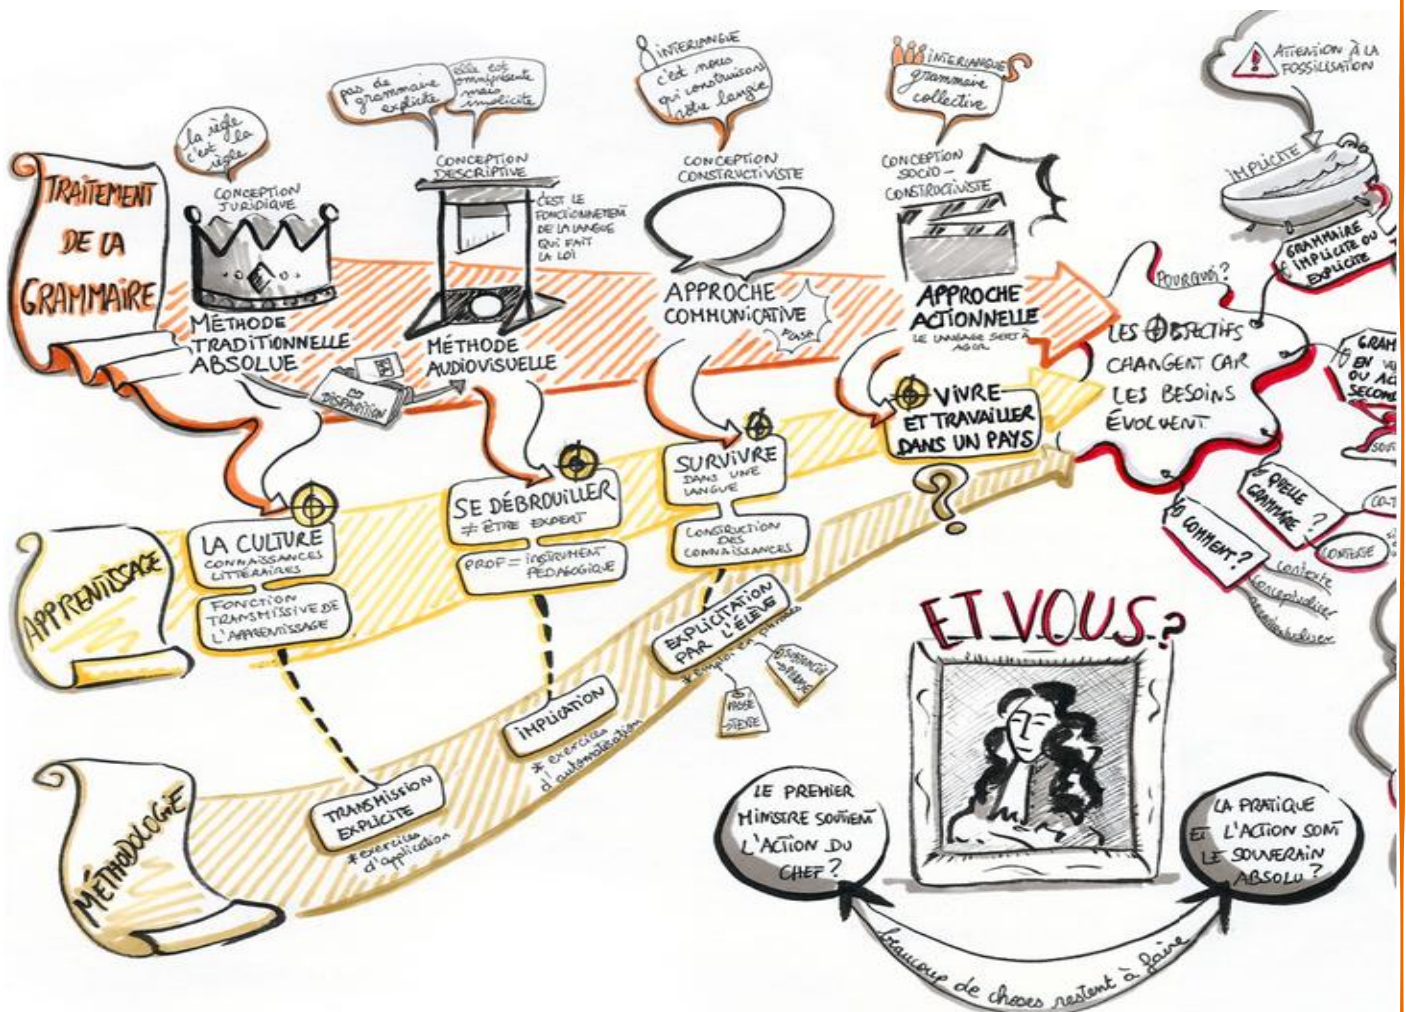 TRAITEMENT
DE LA
GRAMMAIRE
la règle
c'est la
règle
CONCEPTION
JURIDIQUE
MÉTHODE
TRADITIONNELLE
ABSOLUE
EN
DISPARITION
pas de
grammaire
explicite
elle est
omniprésente
mais
implicite
CONCEPTION
DESCRIPTIVE
C'EST LE
FONCTIONNEMENT
DE LA LANGUE
QUI FAIT
LA LOI
MÉTHODE
AUDIOVISUELLE
INTERLANGUE
c'est nous
qui construisons
notre langue
CONCEPTION
CONSTRUCTIVISTE
APPROCHE
COMMUNICATIVE
FLASH
INTERLANGUES
grammaire
collective
CONCEPTION
SOCIO-
CONSTRUCTIVISTE
APPROCHE
ACTIONNELLE
LE LANGAGE SERT À
AGIR
ATTENTION À LA
FOSSILISATION
IMPLICITE
GRAMMAIRE
IMPLICITE OU
EXPLICITE
POURQUOI?
LES OBJECTIFS
CHANGENT CAR
LES BESOINS
ÉVOLUENT
GRAM
EN
OU AC
SECOND
QUELLE
GRAMMAIRE?
CONTEXTE
COMMENT?
contexte
conceptualiser
APPRENTISSAGE
LA CULTURE
CONNAISSANCES
LITTÉRAIRES
FONCTION
TRANSMISSIVE DE
L'APPRENTISSAGE
SE DÉBROUILLER
≠ ÊTRE EXPERT
PROF = INSTRUMENT
PÉDAGOGIQUE
SURVIVRE
DANS UNE
LANGUE
CONSTRUCTION
DES
CONNAISSANCES
VIVRE
ET TRAVAILLER
DANS UN PAYS
?
MÉTHODOLOGIE
TRANSMISSION
EXPLICITE
* exercices
d'application
IMPLICATION
* exercices
d'automatisation
EXPLICITATION
PAR L'ÉLÈVE
* emploi en phrases
PHRASE
→ TEXTE
ET VOUS?
LE PREMIER
MINISTRE SOUTIENT
L'ACTION DU
CHEF?
LA PRATIQUE
ET L'ACTION SONT
LE SOUVERAIN
ABSOLU?
beaucoup de choses restent à faire